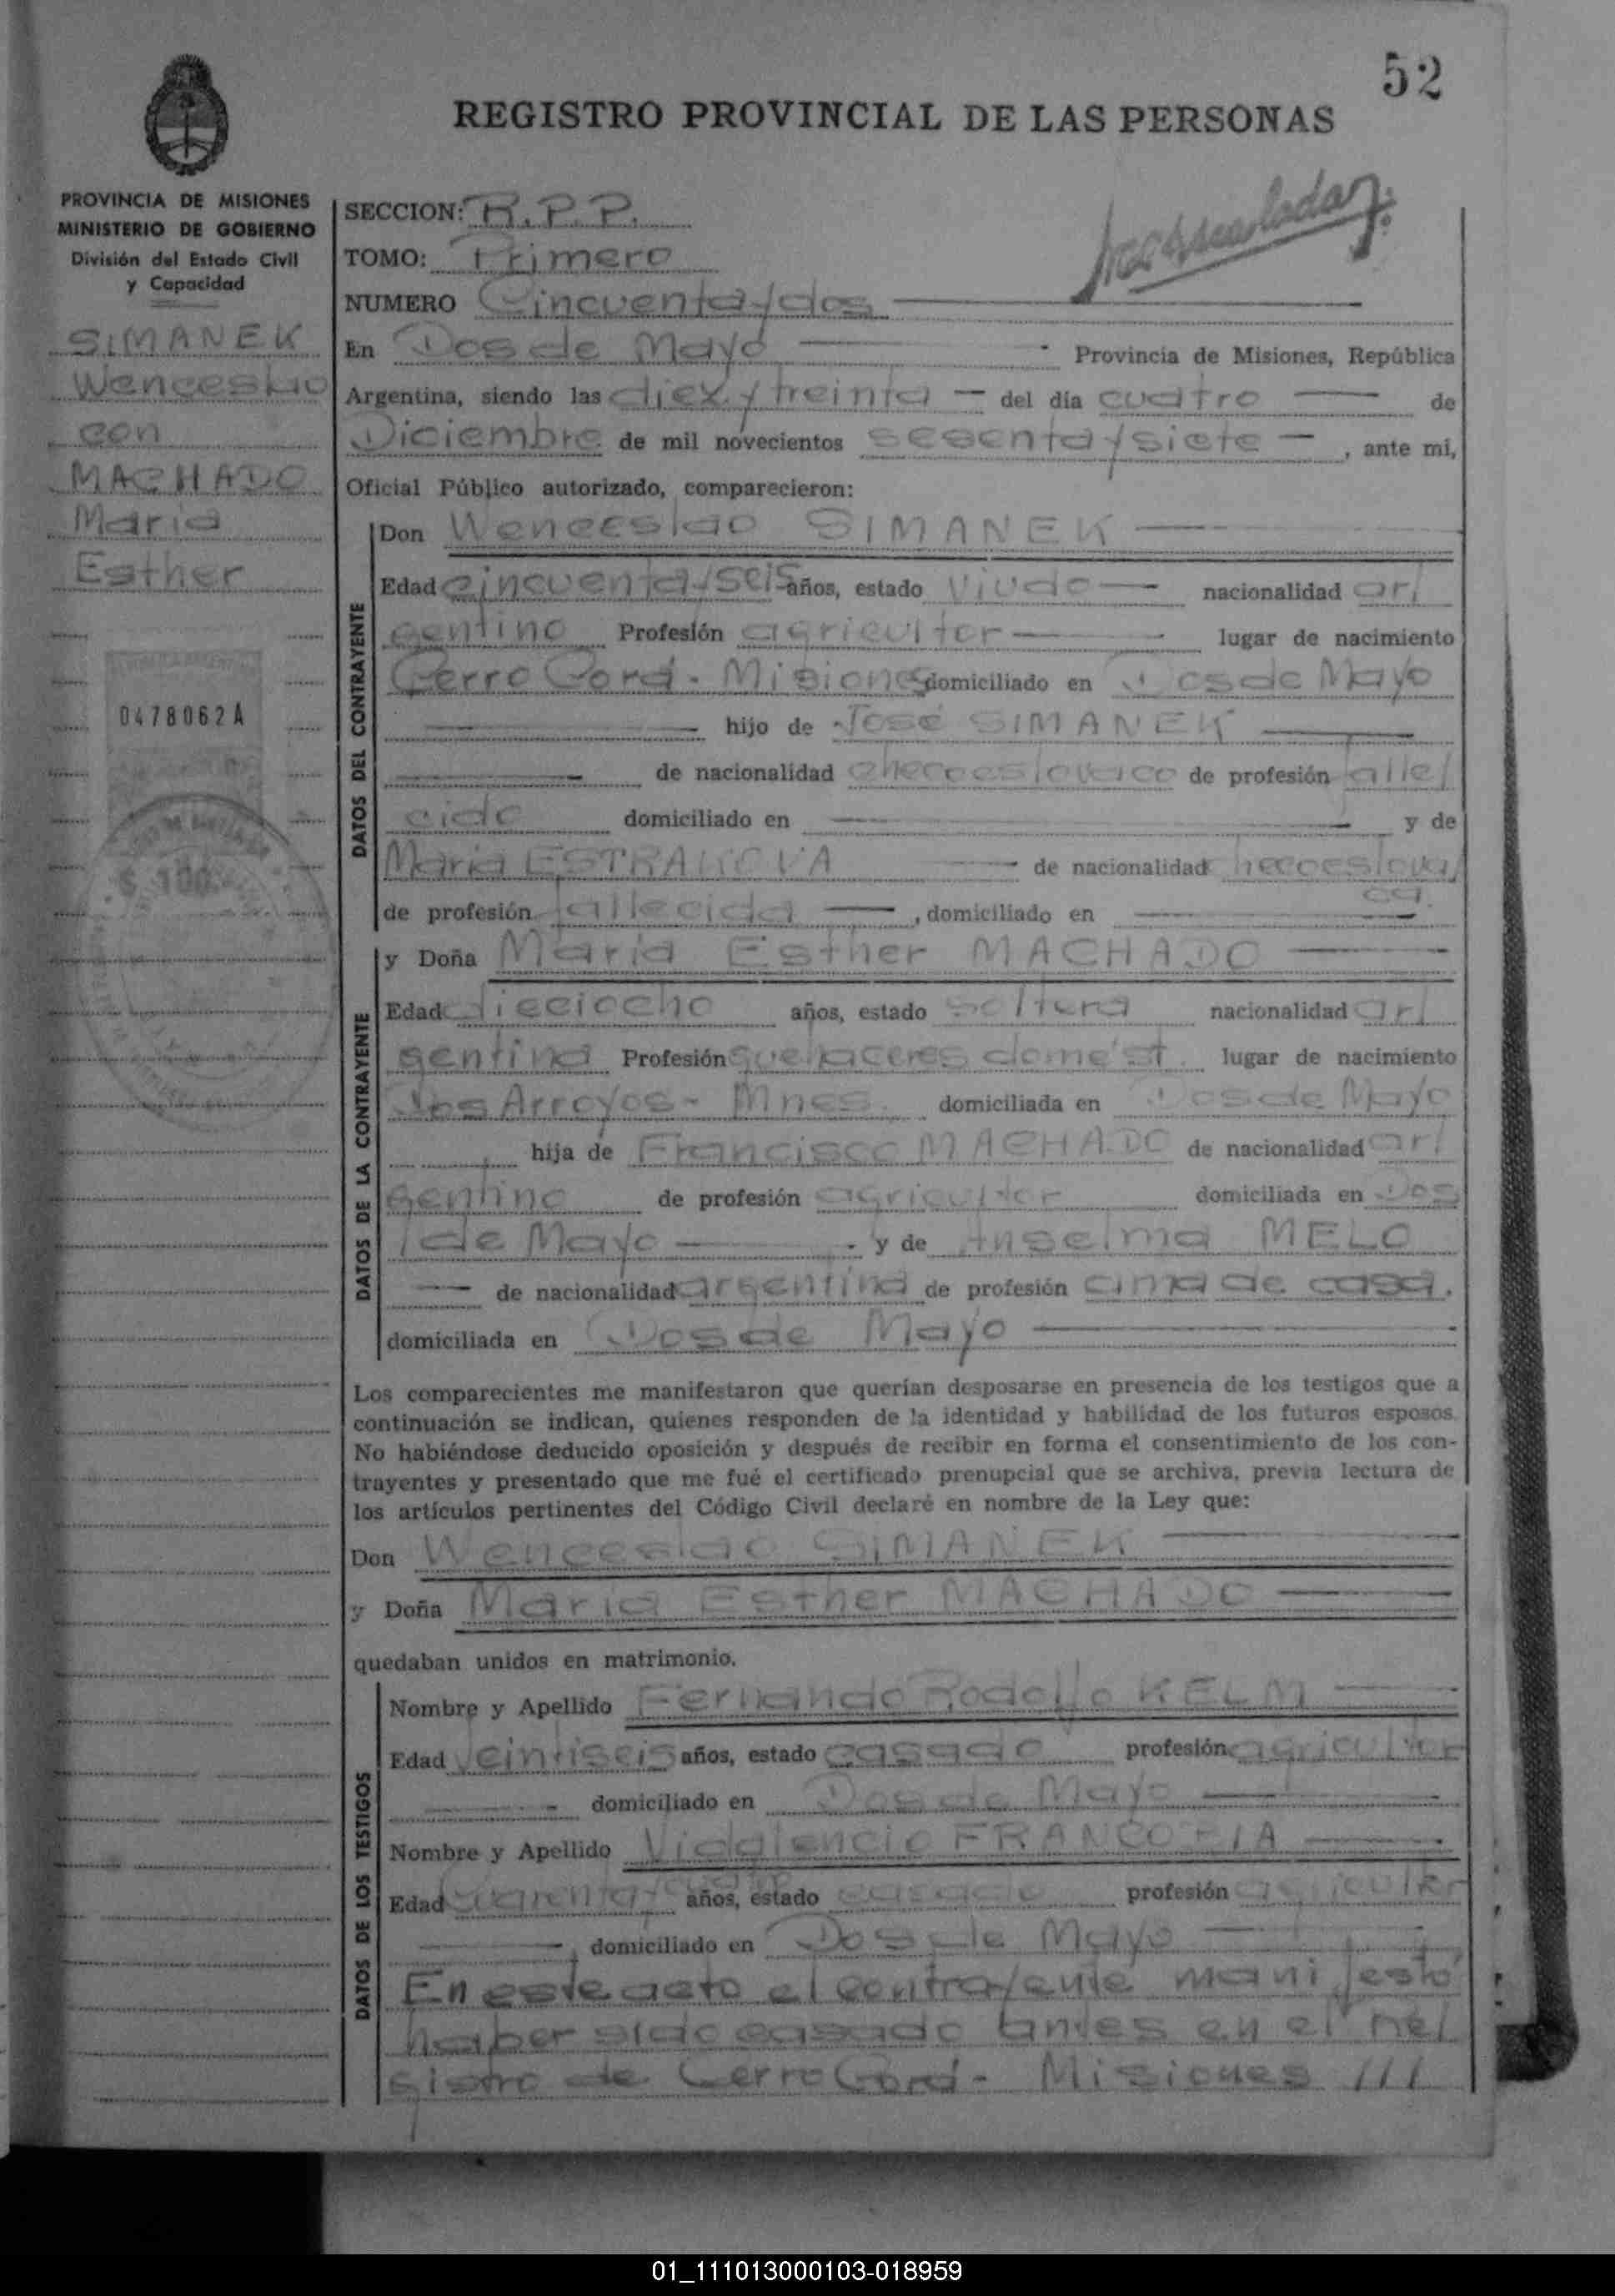 52
REGISTRO PROVINCIAL DE LAS PERSONAS
PROVINCIA DE MISIONES
MINISTERIO DE GOBIERNO
División del Estado Civil
y Capacidad
SIMANEK
Wenceslao
con
MACHADO
Maria
Esther
0478062 A
$ 100
SECCION: R.P.P.
TOMO: Primero
NUMERO Cincuenta/dos
En Dos de Mayo Provincia de Misiones, República
Argentina, siendo las diez y treinta del día cuatro de
Diciembre de mil novecientos sesenta/siete, ante mi,
Oficial Público autorizado, comparecieron:
DATOS DEL CONTRAYENTE
Don Wenceslao SIMANEK
Edad cincuenta/seis años, estado viudo nacionalidad ar/
gentino Profesión agricultor lugar de nacimiento
Cerro Corá - Misiones domiciliado en Dos de Mayo
hijo de José SIMANEK
de nacionalidad checoeslovaco de profesión falle/
cido domiciliado en y de
Maria ESTRAKOVA de nacionalidad checoeslova/
ca.
de profesión fallecida, domiciliado en
DATOS DE LA CONTRAYENTE
y Doña Maria Esther MACHADO
Edad dieciocho años, estado soltera nacionalidad ar/
gentina Profesión quehaceres domést. lugar de nacimiento
Dos Arroyos - Mnes. domiciliada en Dos de Mayo
hija de Francisco MACHADO de nacionalidad ar/
gentino de profesión agricultor domiciliada en Dos
/de Mayo y de Anselma MELO
de nacionalidad argentina de profesión ama de casa.
domiciliada en Dos de Mayo
Los comparecientes me manifestaron que querían desposarse en presencia de los testigos que a
continuación se indican, quienes responden de la identidad y habilidad de los futuros esposos.
No habiéndose deducido oposición y después de recibir en forma el consentimiento de los con-
trayentes y presentado que me fué el certificado prenupcial que se archiva, previa lectura de
los artículos pertinentes del Código Civil declaré en nombre de la Ley que:
Don Wenceslao SIMANEK
y Doña Maria Esther MACHADO
quedaban unidos en matrimonio.
DATOS DE LOS TESTIGOS
Nombre y Apellido Fernando Rodolfo KELM
Edad veintiseis años, estado casado profesión agricultor
domiciliado en Dos de Mayo
Nombre y Apellido Vidalencio FRANCOZIA
Edad cuarenta/cuatro años, estado casado profesión agricultor
domiciliado en Dos de Mayo
En este acto el contrayente manifestó
haber sido casado antes en el Re/
gistro de Cerro Corá - Misiones ///
01_111013000103-018959